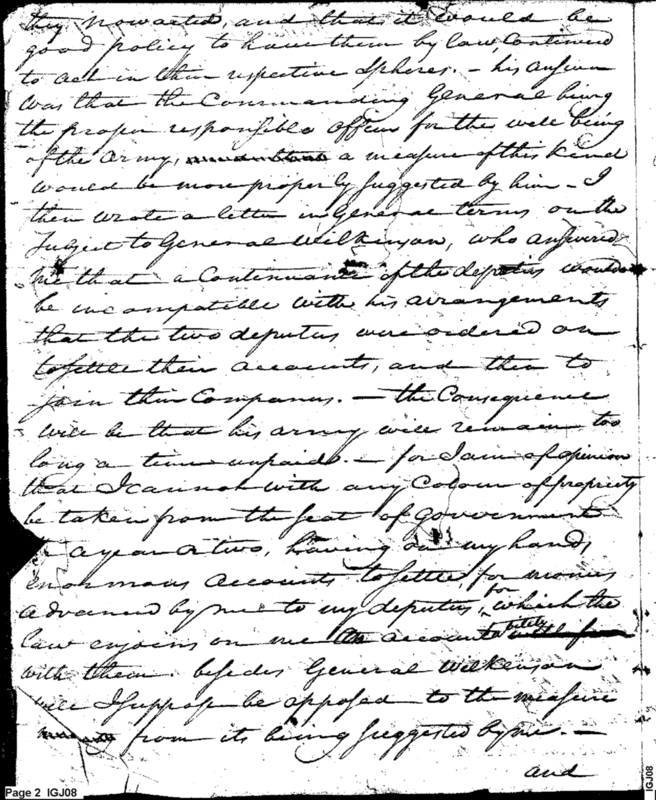 they now acted, and that it would be
good policy to have them by law, Continued
to act in their respective Spheres. – his answer
was that the Commanding General being
the proper responsible officer for the well being
of the army, a measure of this kind
would be more properly suggested by him – I
then wrote a letter in General terms on the
Subject to General Wilkinson, who answered
me that a Continuance of the deputies would
be incompatible with his arrangements
that the two deputies were ordered on
to settle their accounts, and then to
join their Companies. – the Consequence
will be that his army will remain too
long a time unpaid. – for I am of opinion
that I cannot with any Colour of propriety
be taken from the seat of Government
a year or two, having on my hands
enormous accounts to settle for monies
advanced by me to my deputies, for which the
law enjoins on me accountability
with them. besides General Wilkinson
will I suppose be opposed to the measure
from its being suggested by me. –
and
Page 2 IGJ08
IGJ08